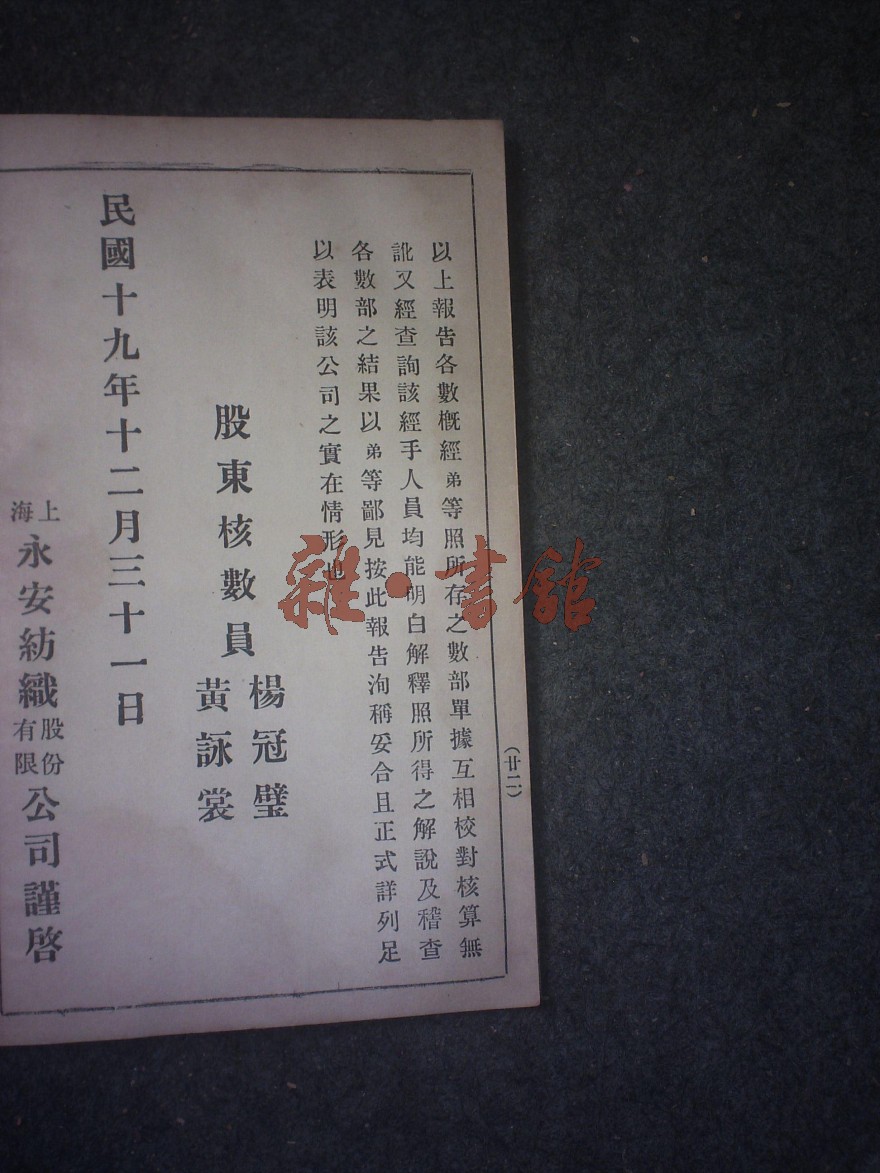 以上報告各數概經弟等照所存之數部單據互相校對核算無
訛又經查詢該經手人員均能明白解釋照所得之解說及稽查
各數部之結果以弟等鄙見按此報告洵稱妥合且正式詳列足
以表明該公司之實在情形也
股東核數員
楊冠璧
黃詠裳
民國十九年十二月三十一日
上海永安紡織股份有限公司謹啓
(廿二)
雜·書館